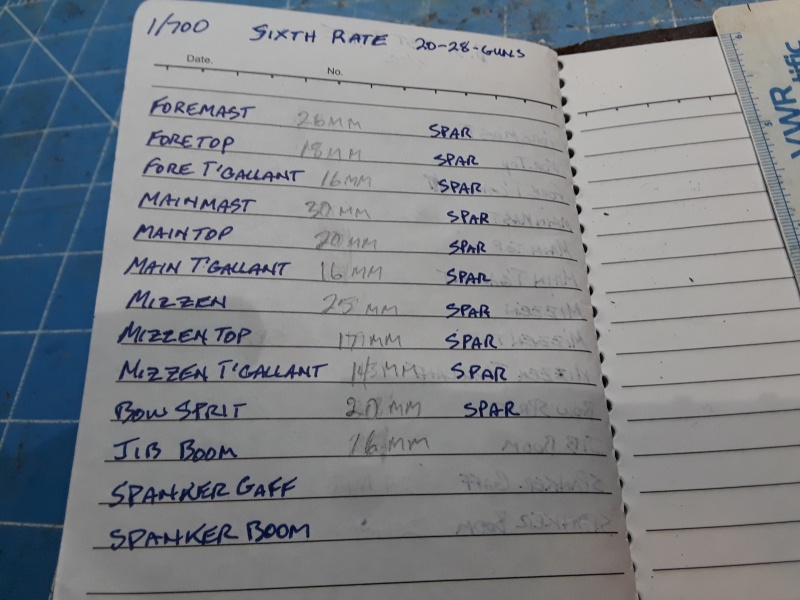 1/700 SIXTH RATE 20-28-GUNS
Date.
No.
FOREMAST 26MM SPAR
FORETOP 18MM SPAR
FORE T'GALLANT 16MM SPAR
MAINMAST 30MM SPAR
MAINTOP 20MM SPAR
MAIN T'GALLANT 16MM SPAR
MIZZEN 25MM SPAR
MIZZEN TOP 17MM SPAR
MIZZEN T'GALLANT SPAR
BOW SPRIT MM SPAR
JIB BOOM 16MM
SPANKER GAFF
SPANKER BOOM
VWR